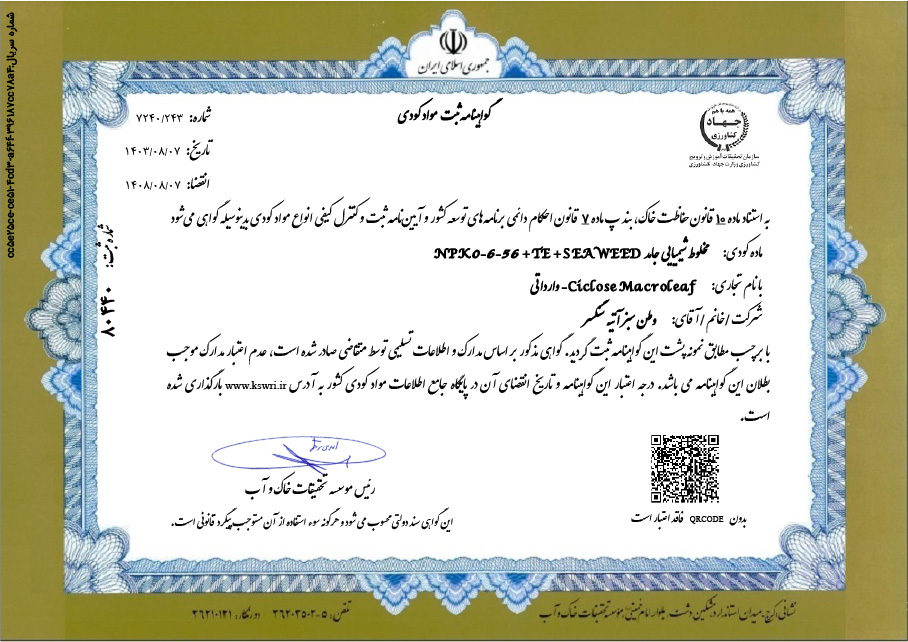 جمهوری اسلامی ایران
همه با هم
جهاد
کشاورزی
سازمان تحقیقات، آموزش و ترویج
کشاورزی وزارت جهاد کشاورزی
گواهینامه ثبت مواد کودی
شماره: ۷۲۴۰/۲۴۳
تاریخ: ۱۴۰۳/۰۸/۰۷
انقضا: ۱۴۰۸/۰۸/۰۷
به استناد ماده ۱۰ قانون حفاظت خاک، بند پ ماده ۷ قانون احکام دائمی برنامه های توسعه کشور و آیین نامه ثبت و کنترل کیفی انواع مواد کودی بدینوسیله گواهی می شود
ماده کودی: مخلوط شیمیایی جامد NPK 0-6-56 +TE +SEAWEED
با نام تجاری: Ciclose Macroleaf- وارداتی
شرکت / خانم / آقای: وطن سبز آتیه سنگسر
با برچسب مطابق نمونه پشت این گواهینامه ثبت گردید. گواهی مذکور بر اساس مدارک و اطلاعات تسلیمی توسط متقاضی صادر شده است، عدم اعتبار مدارک موجب
بطلان این گواهینامه می باشد. درجه اعتبار این گواهینامه و تاریخ انقضای آن در پایگاه جامع اطلاعات مواد کودی کشور به آدرس www.kswri.ir بارگذاری شده
است.
رئیس موسسه تحقیقات خاک و آب
بدون QRCODE فاقد اعتبار است
این گواهی سند دولتی محسوب می شود و هرگونه سوء استفاده از آن مستوجب پیگرد قانونی است.
شماره ثبت: ۸۰۴۴۰
نشانی: کرج، میدان استاندارد، مشکین دشت، بلوار امام خمینی، موسسه تحقیقات خاک و آب
تلفن: ۵-۳۶۲۰۳۵۰۳ دورنگار: ۳۶۲۱۰۱۲۱